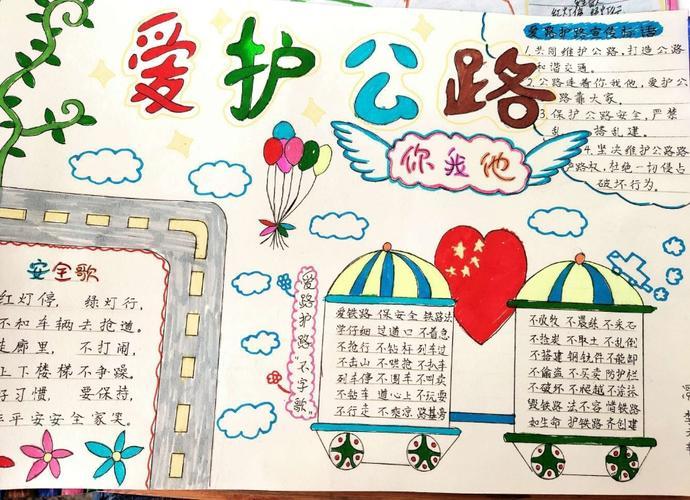 爱护公路
你我他
爱路护路宣传标语
1.共同维护公路,打造公路
和谐交通。
2.公路连着你我他,爱护公
路靠大家。
3.保护公路安全,严禁
乱搭乱建。
4.坚决维护公路路
产路权,杜绝一切侵占
破坏行为。
安全歌
红灯停, 绿灯行,
不和车辆去抢道。
走廊里, 不打闹,
上下楼梯不争躁。
好习惯, 要保持,
平平安安全家笑。
爱路护路“不字歌”
爱铁路 保安全 铁路法
学仔细 过道口 不着急
不抢行 不钻杆 列车过
不击山 不哄抢 不扒车
列车停 不围车 不叫卖
不钻车 道心上 不玩耍
不行走 不乘凉 路基旁
不放牧 不晨练 不采石
不拾炭 不取土 不乱倒
不搭建 钢铁件 不能卸
不偷盗 不买卖 防护栏
不破坏 不爬越 不涂抹
毁铁路 法不容 惜铁路
如生命 护铁路 齐创建